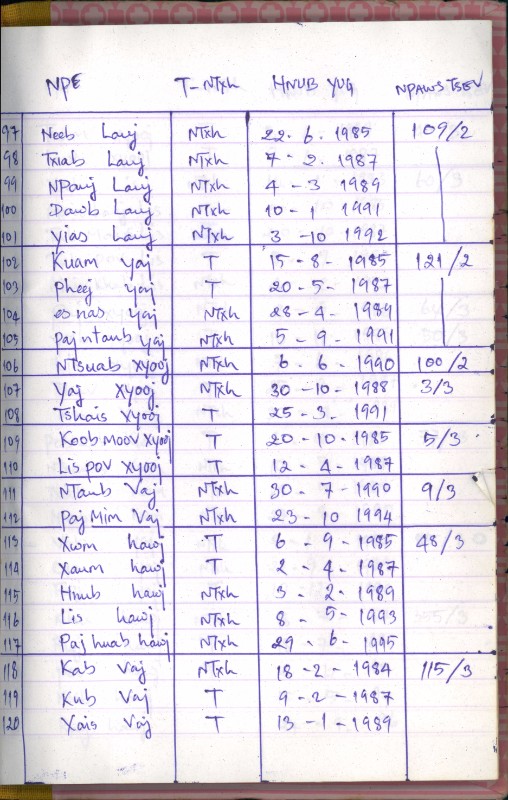 NPE T-NTxh HNUB YUG NPAWS TSEV
97 Neeb Lauj NTxh 22. 6. 1985 109/2
98 Txiab Lauj NTxh 7- 2. 1987
99 NPauj Lauj NTxh 4 - 3 1989
100 Dawb Lauj NTxh 10 - 1 1991
101 Yias Lauj NTxh 3 -10 1992
102 Kuam Yaj T 15 - 8 - 1985 121/2
103 Pheej Yaj T 20 - 5 - 1987
104 es nas Yaj NTxh 28 - 4 - 1989
105 Paj ntaub Yaj NTxh 5 - 9 - 1991
106 NTsuab Xyooj NTxh 6. 6 - 1990 100/2
107 Yaj Xyooj NTxh 30 -10 - 1988 3/3
108 Tshais Xyooj T 25 - 3 - 1991
109 Koob moov Xyooj T 20 - 10 - 1985 5/3
110 Lis pov Xyooj T 12 - 4 - 1987
111 NTaub Vaj NTxh 30 - 7 - 1990 9/3
112 Paj Mim Vaj NTxh 23 - 10 1994
113 Xwm hawj T 6 - 9 - 1985 48/3
114 Xaum hawj T 2 - 4 - 1987
115 Hnub hawj NTxh 3 - 2 - 1989
116 Lis hawj NTxh 8 - 5 - 1993
117 Paj huab hawj NTxh 29 - 6 - 1995
118 Kab Vaj NTxh 18 -2 - 1984 115/3
119 Kub Vaj T 9 -2 - 1987
120 Xais Vaj T 13 -1 - 1989